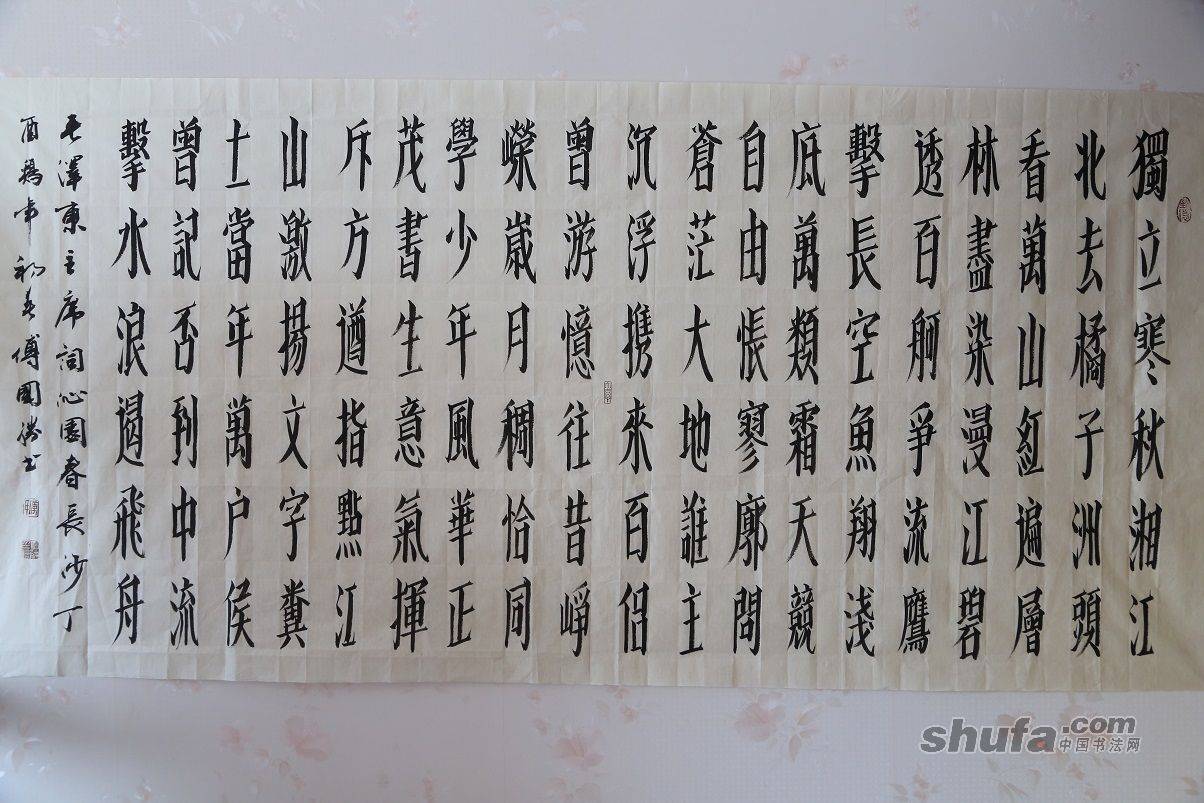 獨立寒秋湘江
北去橘子洲頭
看萬山紅遍層
林盡染漫江碧
透百舸爭流鷹
擊長空魚翔淺
底萬類霜天競
自由悵寥廓問
蒼茫大地誰主
沉浮携來百侣
曾游憶往昔崢
嶸歲月稠恰同
學少年風華正
茂書生意氣揮
斥方遒指點江
山激揚文字糞
土當年萬户侯
曾記否到中流
擊水浪遏飛舟
毛澤東主席詞沁園春長沙丁
酉初傅國书
shufa.com
中国书法网